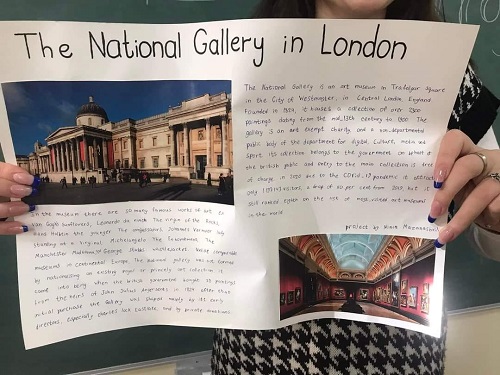 The National Gallery in London
The National Gallery is an art museum in Trafalgar Square
in the City of Westminster, in Central London, England
founded in 1824, it houses a collection of over 2300
paintings dating from the mid_13th century to 1900. The
gallery is an exempt charity and a non-departmental
public body of the department for digital, Culture, media and
sport. Its collection belongs to the government on behalf of
the british public and entry to the main collection is free
of charge in 2020 due to the COVID_19 pandemic it attracted
only 1,197,143 visitors, a drop of per cent from 2019, but it
still ranked on the list of most_visited art museums
in the world
project by
In the museum there are so many famous works of art
Van Gogh Sunflowers, Leonardo da Vinci The Virgin of the Rocks,
Hans Holbein the younger The ambassadors, Johannes Vermeer lady
standing at a Virginal, Michelangelo The Entombment, The
Manchester Madonna, George Stubbs whistlejacket. Unlike comparable
museums in continental Europe, The national gallery was not formed
by nationalising an existing royal or princely art collection it
came into being when the british government bought 38 paintings
from the heirs of John Julius Angerstein in 1824. after that
initial purchase the Gallery was shaped mainly by its early
directors, especially Charles lock Eastlake, and by private donations